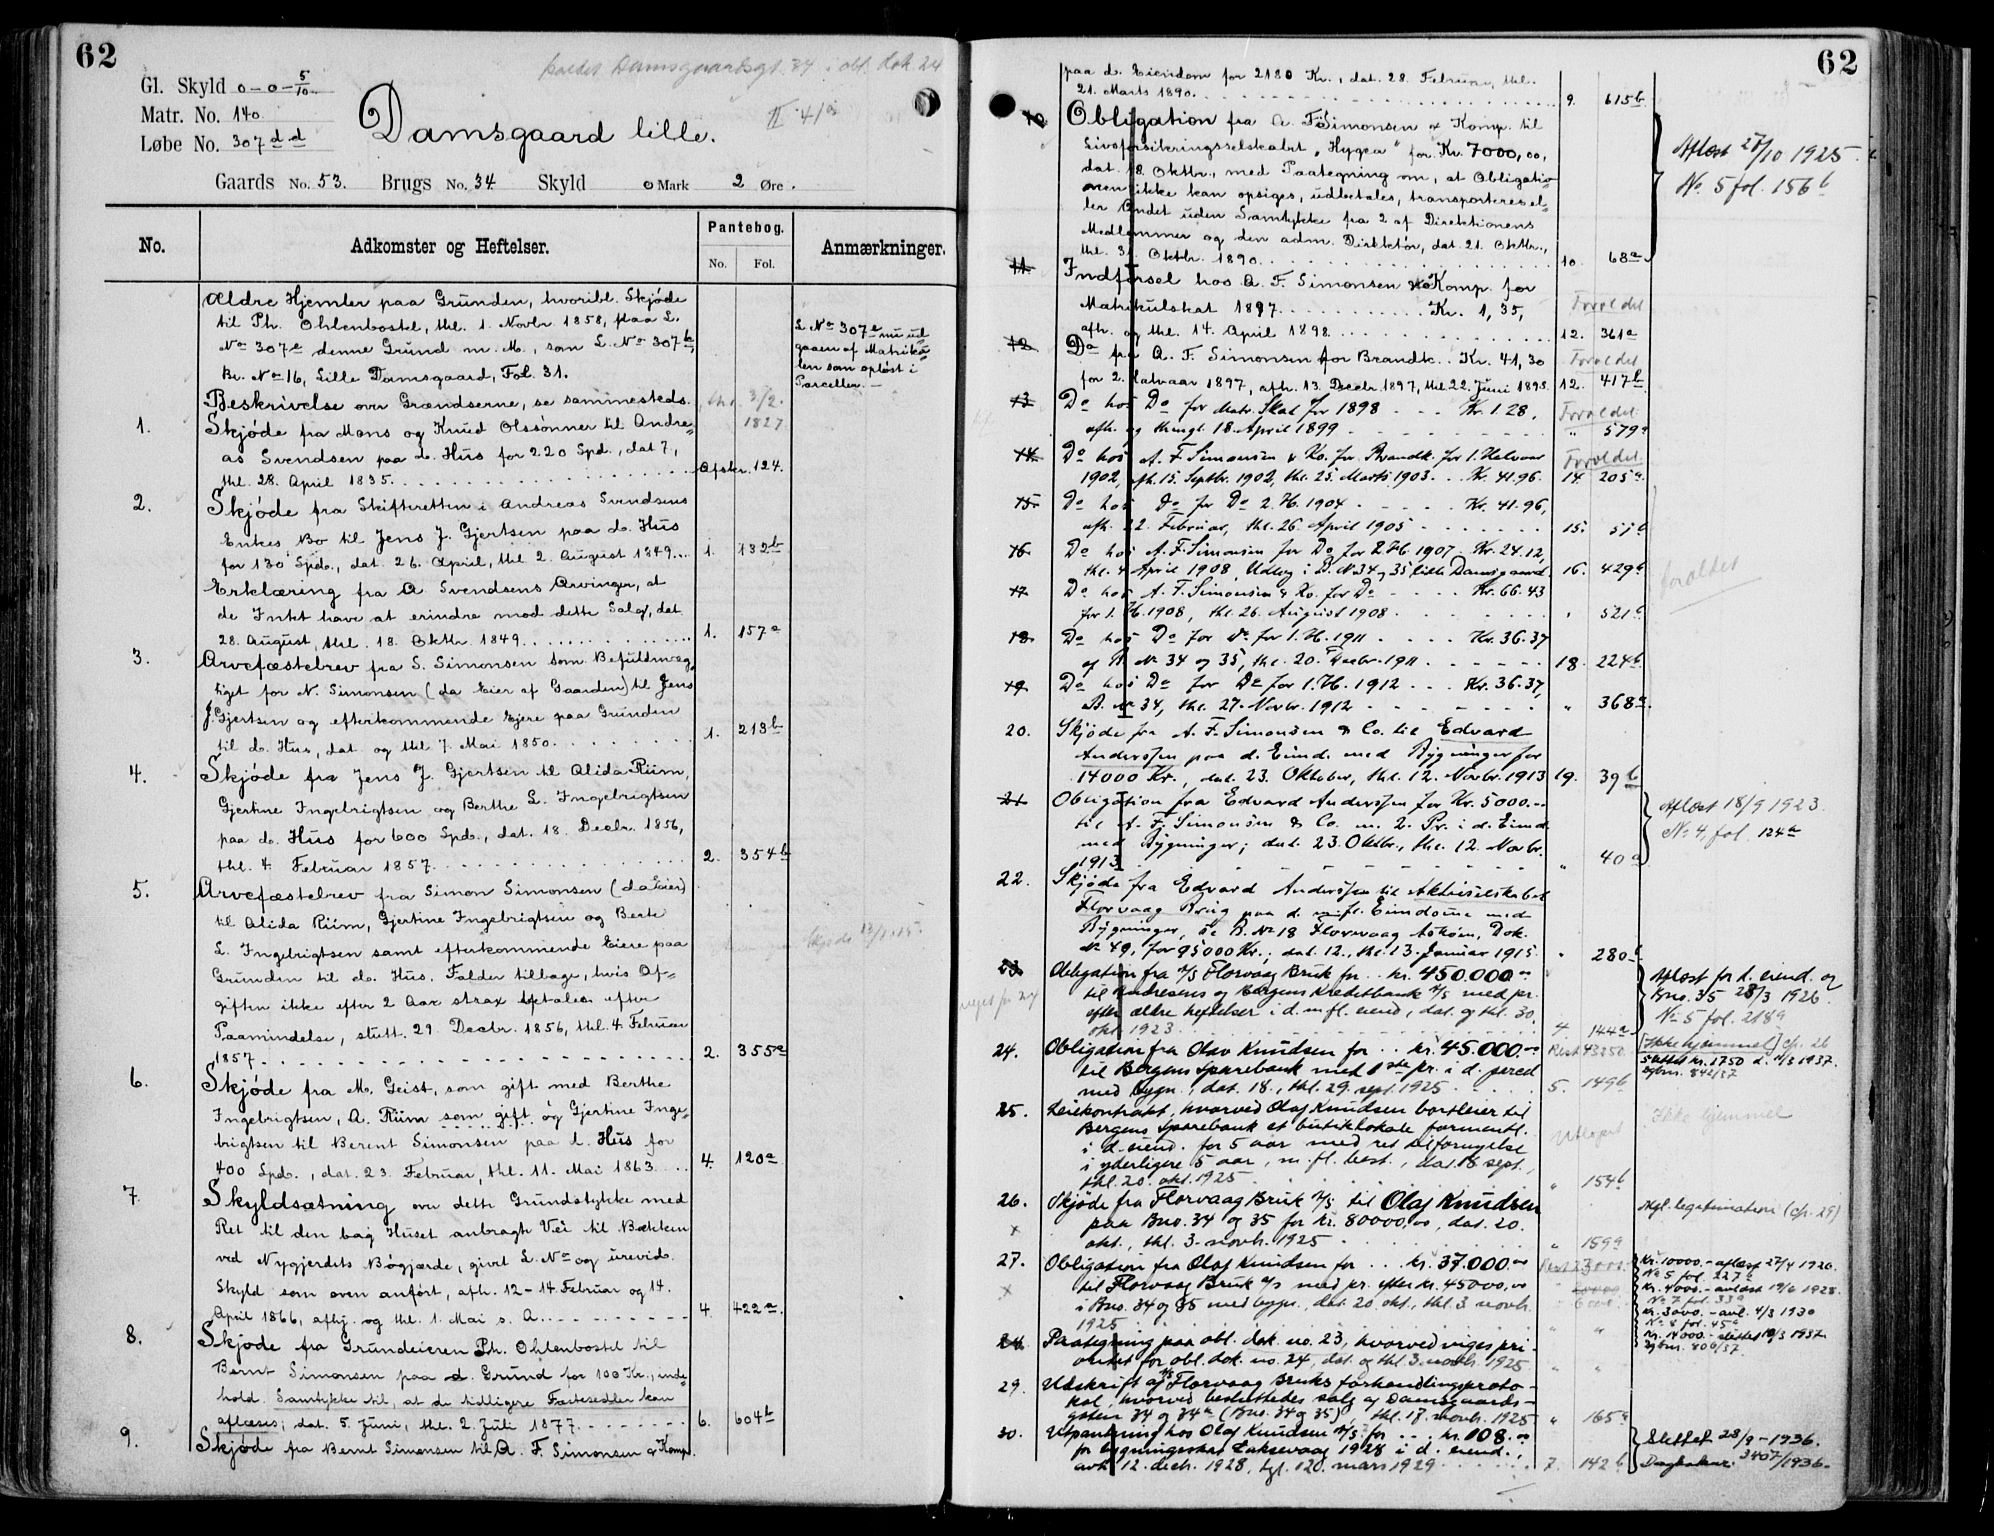 62
kaldet Damsgaardsgt. 34 i obl. dok. 24
Gl. Skyld 0-0-5/10
Matr. No. 140
Løbe No. 307 d d
Damsgaard lille.
Gaards No. 53. Brugs No. 34 Skyld 0 Mark 2 Øre.
No. Adkomster og Heftelser. Pantebog. No. Fol. Anmærkninger.
Ældre Hjemler paa Grunden, hvoribl. Skjøde
til Ph. Ohlenbostel, thl. 1. Novbr 1858, paa L.
No 307e denne Grund m. M., som L. No 307b,
Br. No 16, Lille Damsgaard, Fol. 31.
L No 307e nu ud
gaaen af Matriku
len som opløst i
Parceller. —
Beskrivelse over Grændserne, se sammesteds.
1. Skjøde fra Mons og Knud Olssønner til Andre=
as Svendsen paa d. Hus for 220 Spd., dat 7,
thl. 28. April 1835. Afskr. 124.
2. Skjøde fra Skifteretten i Andreas Svendsens
Enkes Bo til Jens J. Gjertsen paa d. Hus
for 130 Spd., dat. 26. April, thl 2. August 1849. 1. 132b
Erklæring fra A Svendsens Arvinger, at
de Intet have at erindre mod dette Salg, dat.
28. August, thl. 18. Oktbr. 1849. 1. 157a
3. Arvefæstebrev fra S. Simonsen som Befuldmæg,
tiget for N. Simonsen (da Eier af Gaarden) til Jens
J. Gjertsen og efterkommende Ejere paa Grunden
til d. Hus, dat. og thl 7. Mai 1850. 1. 213b
4. Skjøde fra Jens J. Gjertsen til Alida Riim,
Gjertine Ingebrigtsen og Berthe L. Ingebrigtsen
paa d. Hus for 600 Spd., dat. 18. Decbr. 1856,
thl. 4. Februar 1857. 2. 354b
5. Arvefæstebrev fra Simon Simonsen (da Eier)
til Alida Riim, Gjertine Ingebrigtsen og Berte
L. Ingebrigtsen samt efterkommende Eiere paa
Grunden til d. Hus. Falder tilbage, hvis Af=
giften ikke efter 2 Aar strax betales efter
Paamindelse, stutt. 29. Decbr. 1856, thl. 4. Februar
1857. 2. 355a
6. Skjøde fra M. Geist, som gift med Berthe
Ingebrigtsen, A. Riim som gift og Gjertine Inge=
brigtsen til Berent Simonsen paa d. Hus for
400 Spd., dat. 23. Februar, thl. 11. Mai 1863. 4. 120a
7. Skyldsætning over dette Grundstykke med
Ret til den bag Huset anbragte Vei til Bækken
ved Nygjerdets Bøgjærde, givet L. No og urevid.
Skyld som oven anført, afh. 12-14 Februar og 14.
April 1866, afhj. og thl. 1. Mai s. A. 4 422a.
8. Skjøde fra Grundeieren Ph. Ohlenbostel til
Bernt Simonsen paa d. Grund for 100 Kr., inde=
hold. Samtykke til, at de tidligere Fæstesedler kan
aflæses; dat. 5. Juni, thl. 2 Juli 1877. 6. 604b
9. Skjøde fra Bernt Simonsen til A. F. Simonsen & Komp.
62
paa d. Eiendom for 2180 Kr., dat. 28. Februar, thl.
21. Marts 1890. 9. 615b
10 Obligation fra A. F. Simonsen & Komp. til
Livsforsikringsselskabet „Hygea" for Kr. 7000,00,
dat. 18. Oktbr., med Paategning om, at Obligatio=
onen ikke kan opsiges, udbetales, transporteres el=
ler Andet uden Samtykke fra 2 af Direktionens
Medlemmer og den adm. Direktør, dat. 21. Oktbr.,
thl. 31. Oktbr. 1890. 10. 68a
Aflæst 28/10 1925.
No 5 fol. 156b
11. Indførsel hos A. F. Simonsen & Komp. for
Matrikulskat 1897. Kr. 1,35,
afh. og thl. 14. April 1898. 12. 361a
Foreldet
12. Do fra A. F. Simonsen for Brandk. Kr. 41,30
for 2. Halvaar 1897, afh. 13. Decbr. 1897, thl. 22. Juni 1898. 12. 417b
Foreldet
13. Do hos Do for Matr. Skat for 1898 Kr. 1.28,
afh. og thingl. 18. April 1899 " 579a
Foreldet
14. Do hos A. F. Simonsen & Ko. for Brandk. for 1. Halvaar
1902, afh. 15. Septbr. 1902, thl. 25. Marts 1903. Kr. 41.96. 14. 205a.
Foreldet
15. Do hos Do for Do 2. H. 1904 Kr. 41.96,
afh. 22. Februar, thl. 26. April 1905 15. 51b
16. Do hos A. F. Simonsen for Do for 2 H. 1907. Kr. 24.12,
thl. 4 April 1908, Udlæg i B. No 34 og 35 Lille Damsgaard. 16. 429a
foreldet
17. Do hos A. F. Simonsen & Ko. for Do Kr. 66.43
for 1. H. 1908, thl. 26. August 1908 " 521a
18. Do hos Do for Do for 1. H. 1911 Kr. 36.37
af B. No 34 og 35, thl. 20. Decbr. 1911 18. 224b
19. Do hos Do for Do for 1. H. 1912 Kr. 36.37,
B. No 34, thl. 27. Novbr. 1912 " 368a
20. Skjøde fra A. F. Simonsen & Co. til Edvard
Anderssen paa d. Eiend. med Bygninger for
14000 Kr., dat. 23. Oktober, thl. 12. Novbr. 1913 19. 39b
21. Obligation fra Edvard Anderssen for Kr. 5000.-
til A. F. Simonsen & Co. m. 2. Pr. i d. Eiend.
med Bygninger; dat. 23. Oktbr., thl. 12. Novbr.
1913 " 40a
Aflæst 18/9 1923.
No 4, fol. 124a
22. Skjøde fra Edvard Anderssen til Aktieselskabet
Florvaag Brug paa d. m. fl. Eiendomme med
Bygninger, se B. No 18 Florvaag Askøen, Dok.
No 49, for 95000 Kr.; dat. 12., thl. 13. Januar 1915. " 280b
23. Obligation fra A/S Florvaag Bruk for kr. 450.000,00
til Andresens og Bergens Kreditbank A/S med pr.
efter ældre heftelser i d. m fl. eiend, dat. og thl. 30.
okt. 1923 4 144a
viger for 24
Aflæst for d. eiend. og
Bno. 35 28/3 1926.
No 5 fol. 218a
24. Obligation fra Olav Knudsen for kr. 45.000.00
til Bergens Sparebank med 1ste pr. i d. parcel
med bygn., dat. 18., thl. 29. sept. 1925 5. 149b
Rest 43250.
[Ikke hjemmel] cfr. 26
Slettet kr. 1750 d. 11/3 1937.
Dgbnr. 842/37
25. Leiekontrakt, hvorved Olaf Knudsen bortleier til
Bergens Sparebank et butiklokale formentl.
i d. eiend. for 5 aar med ret til fornyelse
i yderligere 5 aar, m. fl. best., dat. 18 sept.,
thl. 20. okt. 1925 " 154b
Utløpet
Ikke hjemmel
26. Skjøde fra Florvaag Bruk A/S til Olaf Knudsen
paa Bno. 34 og 35 for kr. 80000,00, dat. 20.
okt., thl. 3. novb. 1925 " 159a
Mgl. legitimation (cfr. 29)
27. Obligation fra Olaf Knudsen for kr. 37.000.00
til Florvaag Bruk A/S med pr. efter kr. 45000,00
i Bno. 34 og 35 med bygn., dat 20. okt., thl. 3 novb.
1925 " "
Rest 23000.
Kr. 10000.- aflæst 27/4 1926.
No 5 fol. 227a
Kr. 4000.- avlæst 19/6 1928.
No 7 fol. 33a
Kr. 3000.- avl. 4/3 1930
No 8 fol. 45a
Kr. 14000.- slettet 10/3 1937.
Dgbnr. 806/37.
28. Paategning paa obl. dok. no. 23, hvorved viges pri-
oritet for obl. dok. no. 24, dat. og thl 3. novb. 1925 " "
29. Utskrift af A/S Florvaag Bruks forhandlingsproto-
kol, hvorved besluttedes salg af Damsgaards-
gaten 34 og 34a (Bno. 34 og 35), thl. 17. novb. 1925 " 165a
30. Utpantning hos Olaf Knudsen A/S for kr. 108.00
for bygningsskat Laksevaag 1928 i d. eiend.;
avh. 12. decb. 1928, tgl. 120. mars 1929 7. 142b
Slettet 28/9-1936.
Dagboknr. 3407/1936.